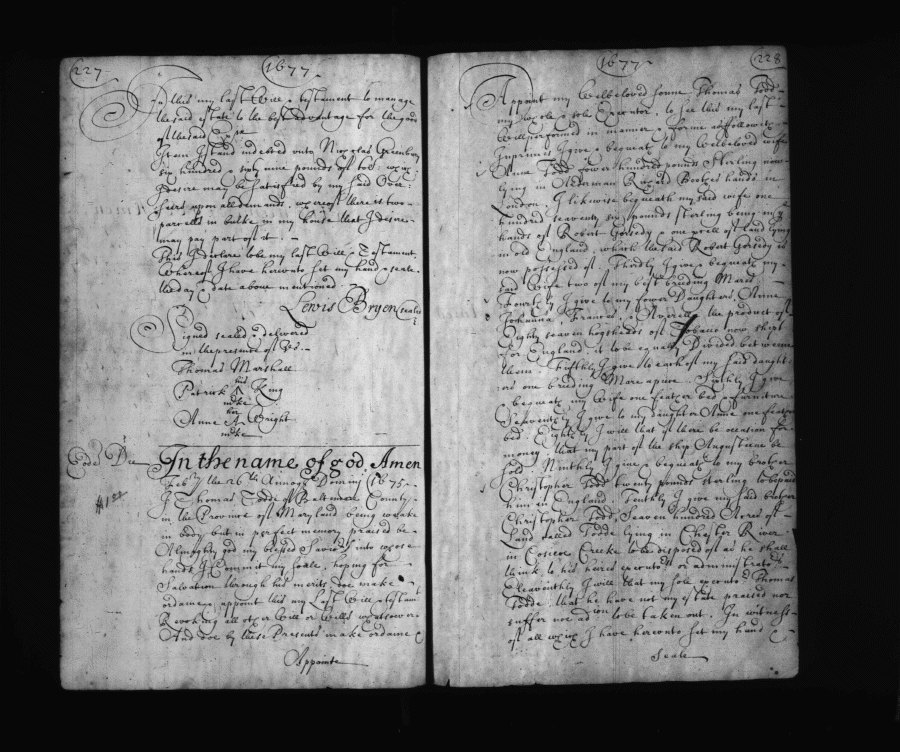 227
1677
In this my last Will & testament to manage
the said estate to the best advantage for the good
of the said
Item I stand indebted unto Nicholas Greenbury
six hundred & sixty nine pounds of tob: wch:
I desire may be satisfied by my said Over-
seers upon all demands, whereof there is two
parcells in bulke in my house that I desire
may pay part of it. -
This I declare to be my last Will & Testament,
Whereof I have hereunto set my hand & seale
the day & date above mentioned.
Lewis Bryen (sealed
Signed sealed & delivered
in the presence of Us. -
Thomas Marshall
his
Patrick King
mke
her
Anne A Wright
mke
In the name of god, Amen
Feb:ry the 26th Annoq Domini 1675. -
I Thomas Todd of Baltimore County,
in the Province of Maryland being weake
in body but in perfect memory praised be
Almighty god my blessed Saviour into whose
hands I Commit my soule, hoping for
Salvation through his merits doe make
ordaine & appoint this my Last Will & testamt
Revoking all other Will or Wills whatsoever
And doe by these Presents make ordaine &
Appointe
1677
228
Appoint my Welbeloved sonne Thomas Todd
my whole & sole Executor, to see this my last
Will performed in manner & forme as followeth
Inprimis I give & bequeath to my Welbeloved wife
Anne Todd fower hundred pounds sterling now
lying in Alderman Richard Booths hands in
London, I likewise bequeath my said wife one
hundred seaventy six pounds sterling being in the
hands of Robert Gorsedy & one prcell of land lying
in old England, which the said Robert Gorsedy is
now possessed of. Thirdly I give & bequeath my
said Wife two of my best briding Mares. -
Fourthly I give to my fower Daughters Anne
Johanna, Frances, & Averilla the product of
Eighty seaven hogsheads of Tobacco now shipt
for England, it to be equally Divided betweene
them. Fifthly I give to each of my said daught
ers one briding Mare apiece. Sixthly I give
& bequeath my Wife one feather bed & furniture
Seaventhly I give to my daughter Anne one feather
bed. Eightly I will that if there be occasion for
money, that my part of the ship Augustine be
sold. Ninthly I give & bequeath to my brother
Christopher Todd twenty pounds sterling to be paid
him in England. Tenthly I give my said brother
Christopher Todd, Seaven hundred Acres of
Land called Todds lying in Chester River
in Coscica Creeke to be disposed of as he shall
think to his heires executors or administrators
Eleaventhly I will that my sole executor Thomas
Todd, that he have not my estate praised nor
suffer noe ad:ion to be taken out. In witness
of all which I have hereunto set my hand &
Seale